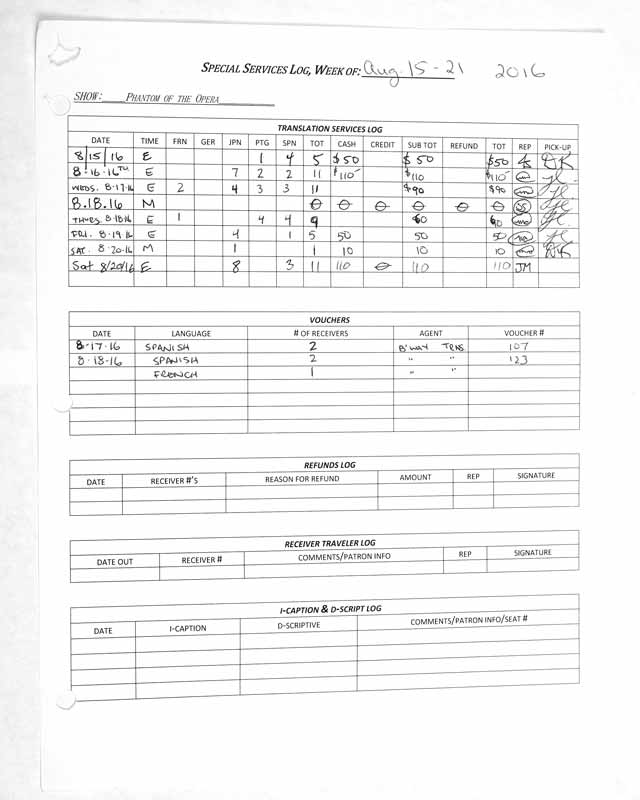 SPECIAL SERVICES LOG, WEEK OF: Aug. 15 - 21 2016
SHOW: PHANTOM OF THE OPERA
TRANSLATION SERVICES LOG
DATE TIME FRN GER JPN PTG SPN TOT CASH CREDIT SUB TOT REFUND TOT REP PICK-UP
8/15/16 E 1 4 5 $50 $50 $50
8.16.16TH E 7 2 2 11 $110 $110 $110
WEDS. 8.17.16 E 2 4 3 3 11 $90 $90
8.18.16 M 0 0 0 0 0 0
THURS. 8.18.16 E 1 4 4 9 60 60
FRI. 8.19.16 E 4 1 5 50 50 50
SAT. 8.20.16 M 1 1 10 10 10
Sat 8/20/16 E 8 3 11 110 0 110 110 JM
VOUCHERS
DATE LANGUAGE # OF RECEIVERS AGENT VOUCHER #
8-17-16 SPANISH 2 B'WAY TRNS 107
8-18-16 SPANISH 2 " " 123
FRENCH 1 " "
REFUNDS LOG
DATE RECEIVER #'S REASON FOR REFUND AMOUNT REP SIGNATURE
RECEIVER TRAVELER LOG
DATE OUT RECEIVER # COMMENTS/PATRON INFO REP SIGNATURE
I-CAPTION & D-SCRIPT LOG
DATE I-CAPTION D-SCRIPTIVE COMMENTS/PATRON INFO/SEAT #